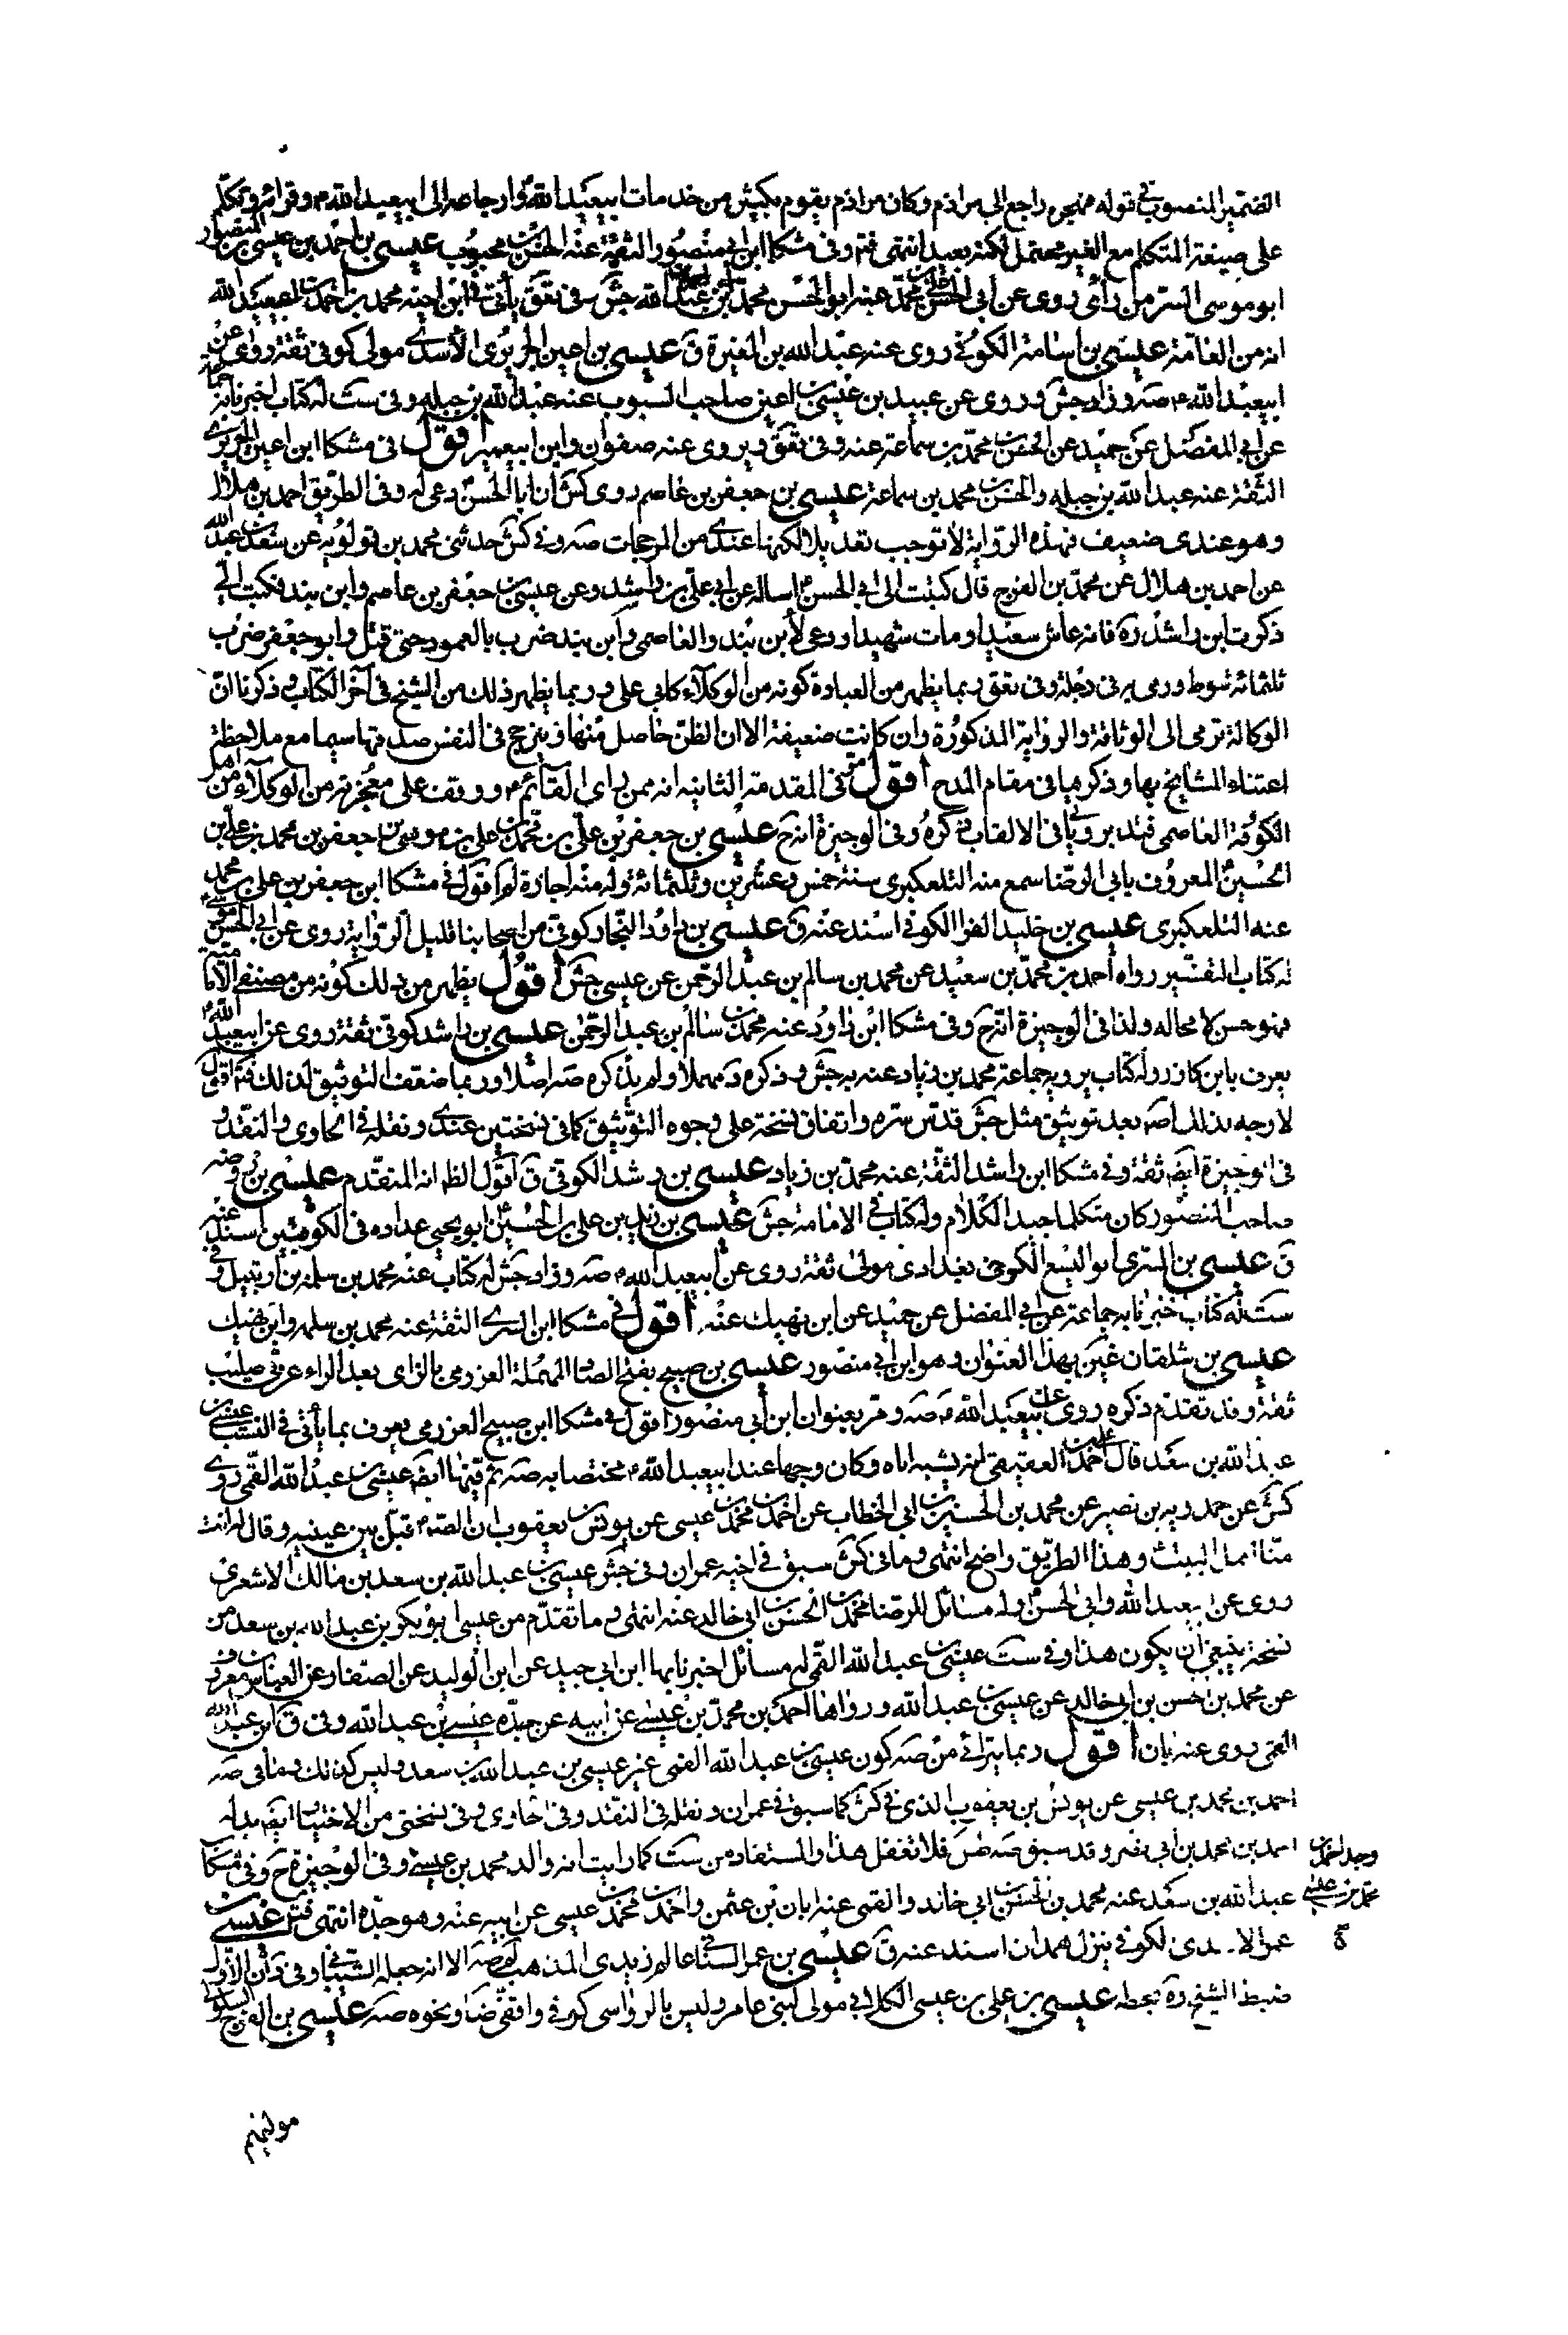 الضمير المنصوب في قوله فمنهم راجع الى مرازم وكان مرازم يقوم بكثير من خدمات ابيعبد الله ع وارجاعه الى ابيعبد الله ع وقرائة وتكلم
على صيغة المتكلم مع الغير محتمل لكنه بعيد انتهى فتم وفي مشكا ابن ابي منصور الثقة عنه الحسن بن محبوب عيسى بن احمد بن عيسى بن المنصور
ابو موسى السر من رأى روى عن ابي الحسن علي بن محمد عنه ابو الحسن محمد بن عبيد الله جش وفي تعق يأتي في ابن اخيه محمد بن احمد بن عبيد الله
انه من العامة عيسى بن اسامة الكوفي روى عنه عبد الله بن المغيرة ق عيسى بن اعين الجريري الأسدي مولى كوفي ثقة روى عن
ابيعبد الله ع صه وزاد جش وروى عن عبيد بن عيسى بن اعين صاحب السبوب عنه عبد الله بن جبلة وفي ست له كتاب اخبرنا به جماعة
عن ابي المفضل عن حميد عن الحسن بن محمد بن سماعة عنه وفي تعق ويروى عنه صفوان وابن ابيعمير اقول في مشكا ابن اعين الجريري
الثقة عنه عبد الله بن جبله والحسن بن محمد بن سماعة عيسى بن جعفر بن عاصم روى كش ان ابا الحسن ع دعى له وفي الطريق احمد بن هلال
وهو عندي ضعيف فهذه الرواية لا توجب تعديلا لكنها عندي من المرجحات صه وفي كش حدثني محمد بن قولويه عن سعد بن عبد الله
عن احمد بن هلال عن محمد بن الفرج قال كتبت الى ابي الحسن ع اساله عن ابي علي بن راشد وعن عيسى بن جعفر بن عاصم وابن بند فكتب الي
ذكرت ابن راشد ره فانه عاش سعيدا ومات شهيدا ودعى لابن بند والعاصمي وابن بند ضرب بالعمود حتى قتل وابو جعفر ضرب
ثلثمائة سوط ورمى به في دجلة وفي تعق ربما يظهر من العبارة كونه من الوكلاء كابي علي و ربما يظهر ذلك من الشيخ في آخر الكتاب وذكرنا ان
الوكالة ترمى الى الوثاقة والرواية المذكورة وان كانت ضعيفة الا ان الظن حاصل منها ويترجح في النفس صدقها سيما مع ملاحظة
اعتناء المشايخ بها وذكرها في مقام المدح اقول مر في المقدمة الثانية انه ممن راى القائم ع ووقف على معجزته من الوكلاء من اهل
الكوفة العاصمي فتدبر ويأتي في الالقاب ذكره وفي الوجيزة انه ح عيسى بن جعفر بن علي بن محمد بن علي بن موسى بن جعفر بن محمد بن علي بن
الحسين ع المعروف بابي الرضا سمع منه التلعكبري سنة خمس وعشرين وثلثمائة وله منه اجازة لم اقول في مشكا ابن جعفر بن علي بن محمد
عنه التلعكبري عيسى بن خليد الفرا الكوفي اسند عنه ق عيسى بن داود النجار كوفي من اصحابنا قليل الرواية روى عن ابي الحسن موسى ع
له كتاب التفسير رواه احمد بن محمد بن سعيد عن محمد بن سالم بن عبد الرحمن عن عيسى جش اقول يظهر من ذلك كونه من مصنفي الامامية
فهو حسن لا محاله ولذا في الوجيزة انه ح وفي مشكا ابن داود عنه محمد بن سالم بن عبد الرحمن عيسى بن راشد كوفي ثقة روى عن ابيعبد الله ع
يعرف بابن كازر وله كتاب يرويه جماعة محمد بن زياد عنه به جش وذكره د مهملا ولم يذكره صه اصلا وربما ضعف التوثيق لذلك فتم اقول
لا وجه لذلك اصه بعد توثيق مثل جش قدس سره واتفاق نسخة على وجود التوثيق كما في نسختين عندي ونقله في الحاوي والنقد و
في الوجيزة ايض ثقة وفي مشكا ابن راشد الثقة عنه محمد بن زياد عيسى بن رشد الكوفي ق اقول الظ انه المتقدم عيسى بن روضه
صاحب المنصور كان متكلما جيد الكلام وله كتاب في الامامة جش عيسى بن زيد بن علي بن الحسين ع ابو يحيى عداده في الكوفيين اسند عنه
ق عيسى بن السري ابو اليسع الكرخي بغدادي مولى ثقة روى عن ابيعبد الله ع صه وزاد جش له كتاب عنه محمد بن سلمة بن ارتبيل وفي
ست له كتاب اخبرنا به جماعة عن ابي المفضل عن حميد عن ابن نهيك عنه اقول في مشكا ابن السري الثقة عنه محمد بن سلمه وابن نهيك
عيسى بن شلقان غير بهذا العنوان وهو ابن ابي منصور عيسى بن صبيح بفتح الصاد المهملة العزرمي بالزاي بعد الراء عربي صليب
ثقة وقد تقدم ذكره روى عن ابيعبد الله ع صه ومر بعنوان ابن أبي منصور اقول في مشكا ابن صبيح العزرمي يعرف بما يأتي في النسب عيسى بن
عبد الله بن سعد قال علي بن احمد العقيقي انه يشبه اباه وكان وجها عند ابيعبد الله ع مختصا به صه ثم فيها ايض عيسى بن عبد الله القمي روى
كش عن حمدويه بن نصير عن محمد بن الحسين بن ابي الخطاب عن احمد بن محمد بن عيسى عن يونس بن يعقوب ان الصه ع قبل بين عينيه وقال له انت
منا اهل البيت وهذا الطريق واضح انتهى وما في كش سبق في اخيه عمران وفي جش عيسى بن عبد الله بن سعد بن مالك الاشعري
روى عن ابيعبد الله وابي الحسن ع وله مسائل للرضا ع محمد بن الحسن بن ابي خالد عنه انتهى وما تقدم من عيسى ابو بكر بن عبد الله بن سعد من
نسخة ينبغي ان يكون هذا وفي ست عيسى بن عبد الله القمي له مسائل اخبرنا بها ابن ابي جيد عن ابن الوليد عن الصفار عن العباس بن معروف
عن محمد بن الحسن بن ابي خالد عن عيسى بن عبد الله ورواها احمد بن محمد بن عيسى عن ابيه عن جده عيسى بن عبد الله وفي ق ابن عبد الله
القمي روى عنه ابان اقول ربما يترائى من صه كون عيسى بن عبد الله القمي غير عيسى بن عبد الله بن سعد وليس كذلك وما في صه
احمد بن محمد بن عيسى عن يونس بن يعقوب الذي في كش كما سبق في عمران ونقله في النقد وفي الحاوي وفي نسختي من الاختيار ايض بدله
احمد بن محمد بن ابي نصر وقد سبق صه طس فلا تغفل هذا والمستفاد من ست كما رايت انه والد محمد بن عيسى وفي الوجيزة ح وفي مشكا
وجد احمد بن
محمد بن عيسى
عبد الله بن سعد عنه محمد بن الحسن بن ابي خالد والقمي عنه ابان بن عثمن واحمد بن محمد بن عيسى عن ابيه عنه وهو جده انتهى فتدبر عيسى بن
عمر الاسدي الكوفي نزل همدان اسند عنه ق عيسى بن عمر السنائي عالم زيدي المذهب صه الا انه جعله الشيباني وفي د ان الاول
ضبط الشيخ ره بخطه عيسى بن علي بن عيسى الكلابي مولى لبني عامر وليس بالرواسي كوفي واقفي ضا ونحوه صه عيسى بن الفرج السلولي
مولیهم